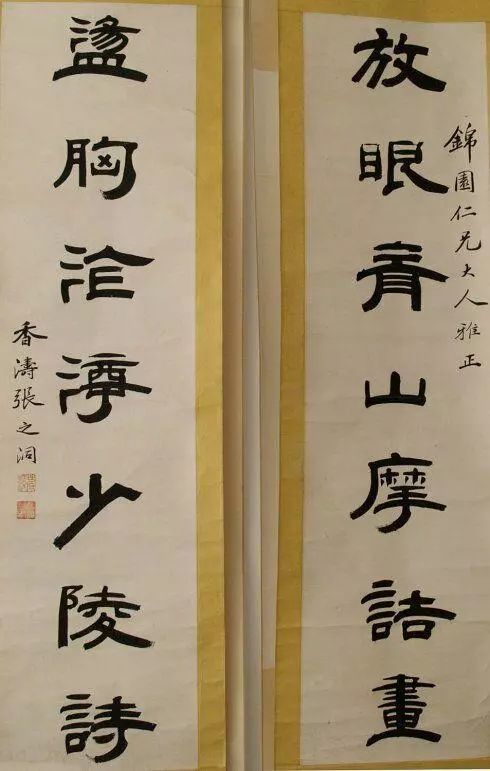 放眼青山摩詰畫
錦園仁兄大人雅正
盪胸滄海少陵詩
香濤張之洞